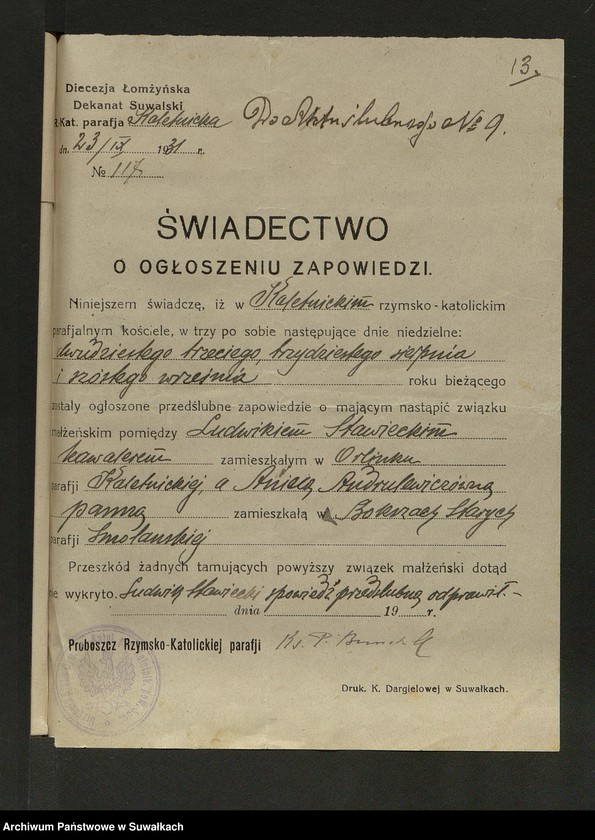 13.
Diecezja Łomżyńska
Dekanat Suwalski
R. Kat. parafja Kaletnicka
Do Aktu ślubnego № 9.
dn. 23/IX 1931 r.
№ 117
ŚWIADECTWO
O OGŁOSZENIU ZAPOWIEDZI.
Niniejszem świadczę, iż w Kaletnickim rzymsko-katolickim
parafjalnym kościele, w trzy po sobie następujące dnie niedzielne:
dwudziestego trzeciego trzydziestego sierpnia
i szóstego września roku bieżącego
zostały ogłoszone przedślubne zapowiedzie o mającym nastąpić związku
małżeńskim pomiędzy Ludwikiem Sławieckim
kawalerem zamieszkałym w Orlinku
parafji Kaletnickiej, a Anielą Andrulewiczówną
panną zamieszkałą w Bokszach Starych
parafji Smolańskiej
Przeszkód żadnych tamujących powyższy związek małżeński dotąd
nie wykryto. Ludwik Sławiecki spowiedź przedślubną odprawił.-
dnia 19 r.
Proboszcz Rzymsko-Katolickiej parafji Ks. P.
Druk. K. Dargielowej w Suwałkach.
Archiwum Państwowe w Suwałkach